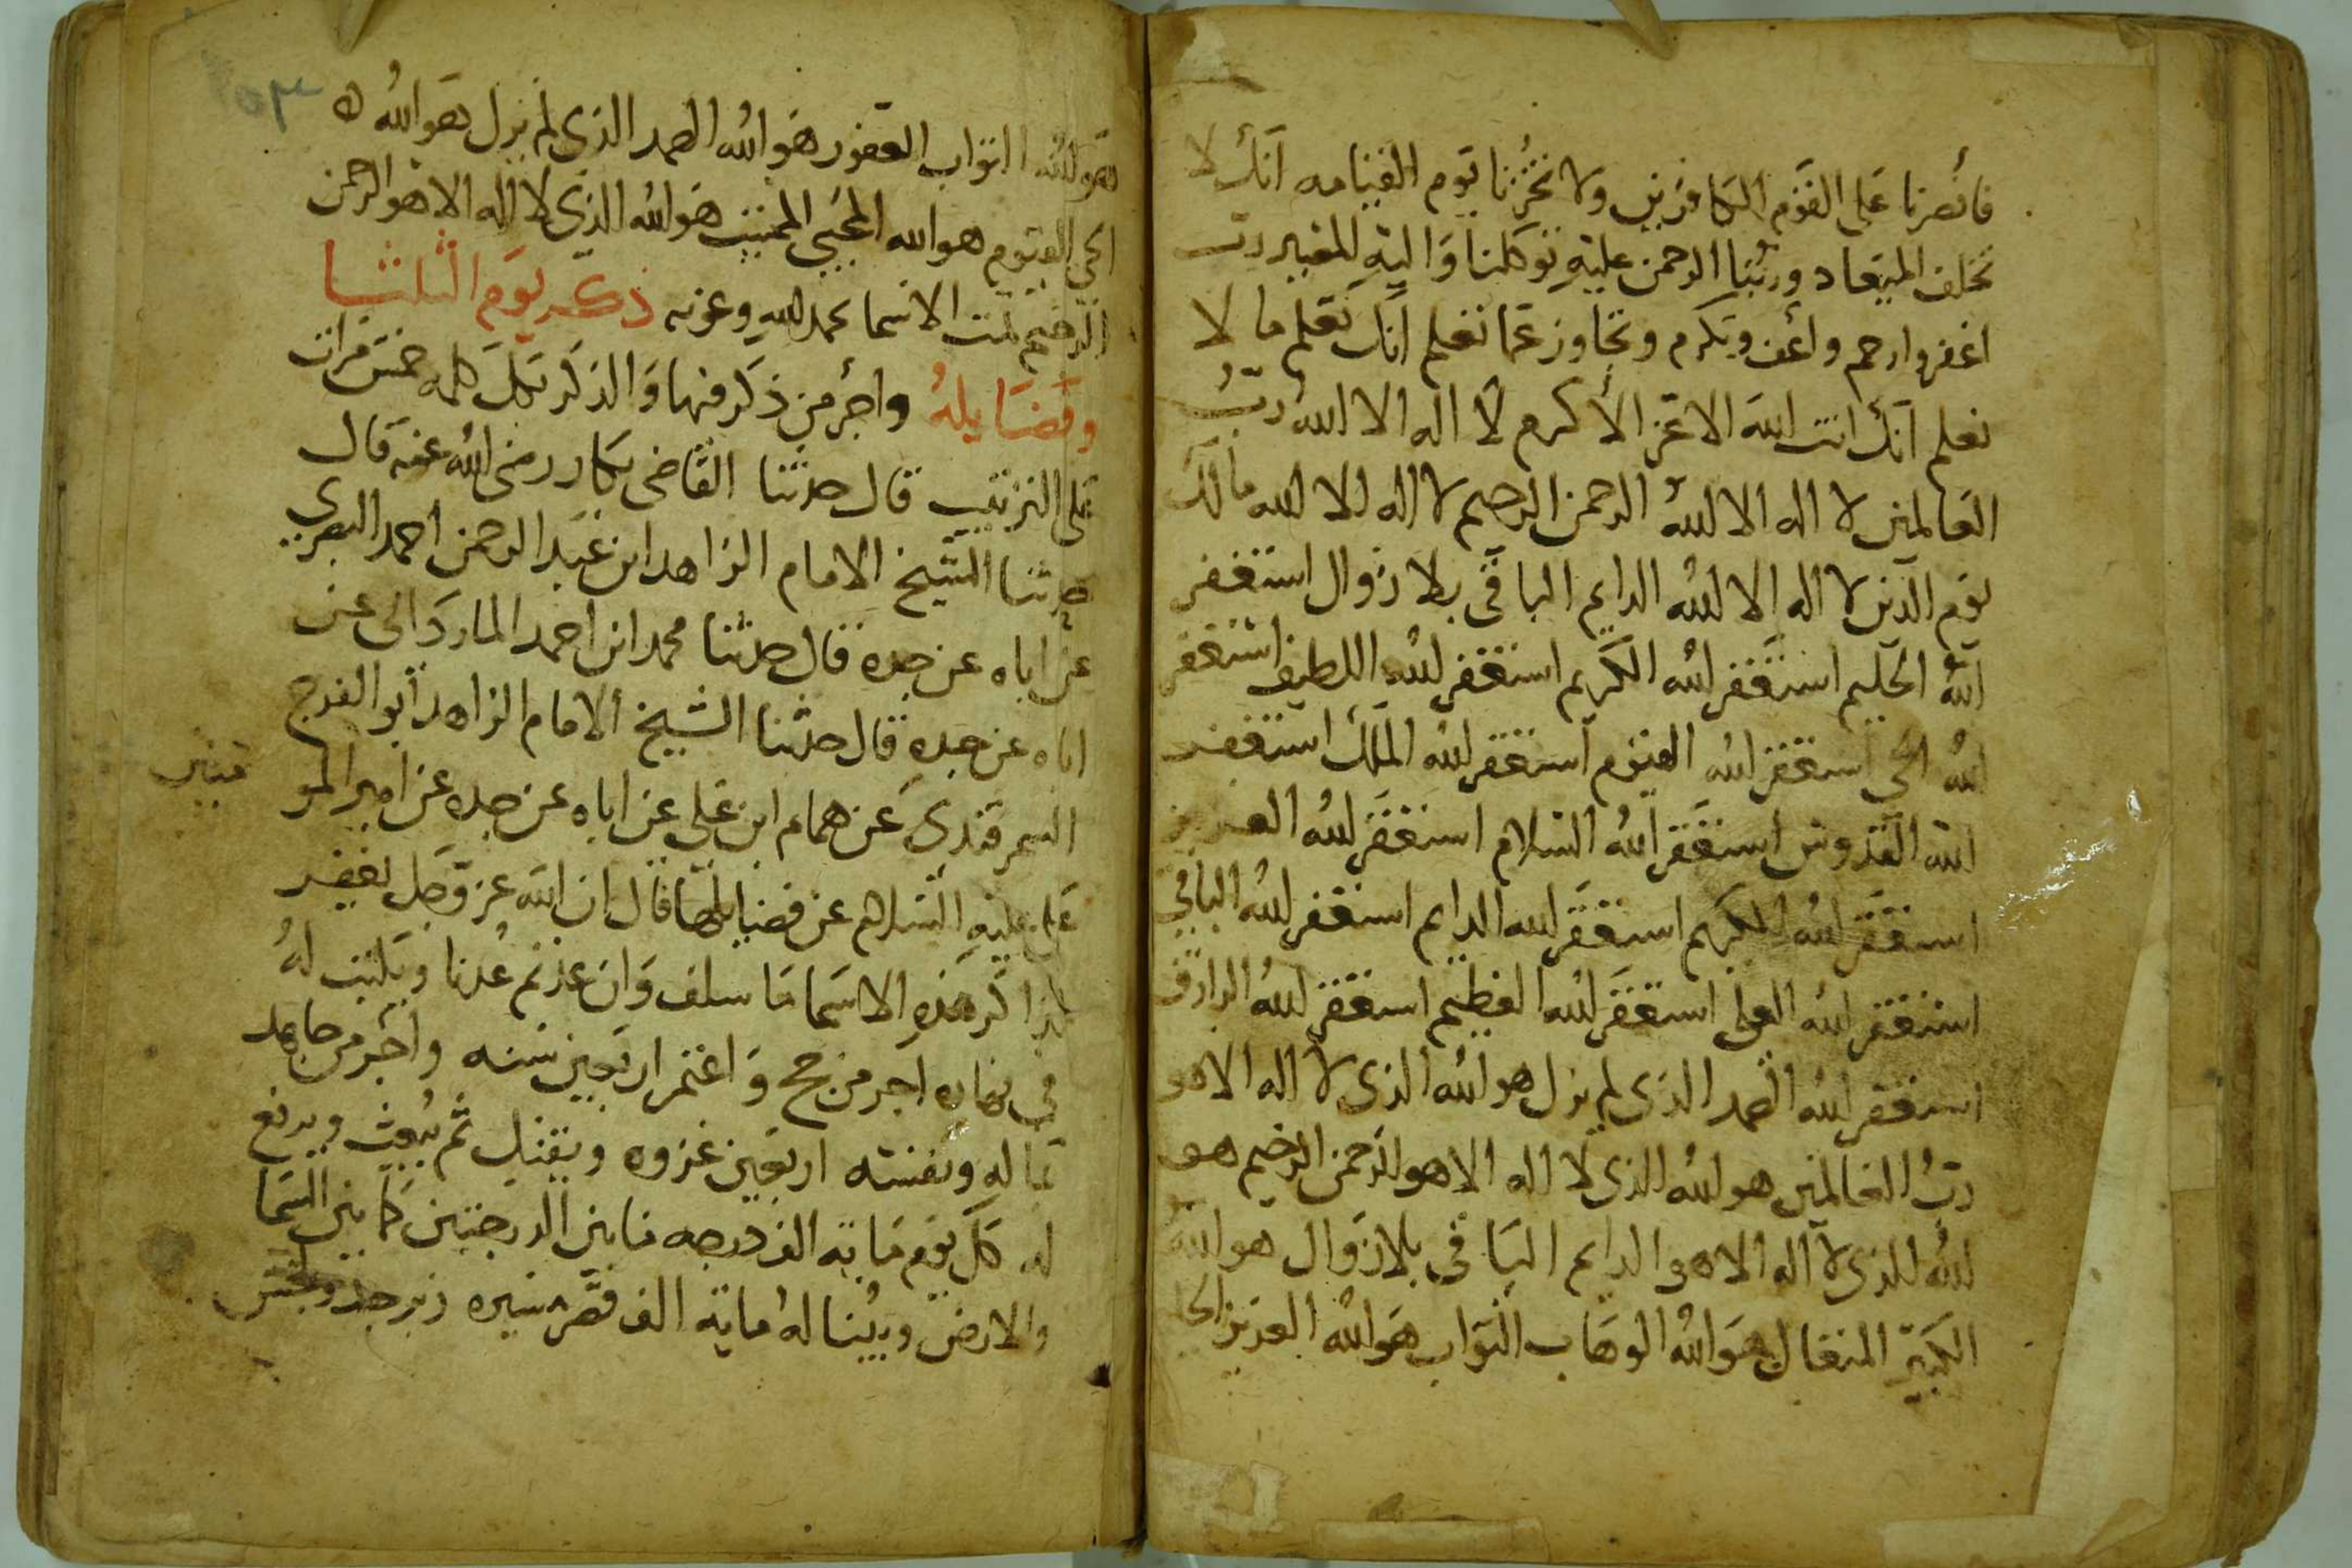 فانصرنا على القوم الكافرين ولا تخزنا يوم القيامه انك لا
تخلف الميعاد وربنا الرحمن عليه توكلنا واليه المصير رب
اغفر وارحم واعف وتكرم وتجاوز عما تعلم انك تعلم ما لا
نعلم انك انت الله الاعز الاكرم لا اله الا الله رب
العالمين لا اله الا الله الرحمن الرحيم لا اله الا الله مالك
يوم الدين لا اله الا الله الدايم الباقي بلا زوال استغفر
الله الحليم استغفر الله الكريم استغفر الله اللطيف استغفر
الله الحي استغفر الله القيوم استغفر الله الملك استغفر
الله القدوس استغفر الله السلام استغفر الله العزيز
استغفر الله الكريم استغفر الله الدايم استغفر الله الباقي
استغفر الله العلي استغفر الله العظيم استغفر الله الرازق
استغفر الله الصمد الذي لم يزل هو الله الذي لا اله الا هو
رب العالمين هو الله الذي لا اله الا هو الرحمن الرحيم هو
الله الذي لا اله الا هو الدايم الباقي بلا زوال هو الله
الكبير المتعال هو الله الوهاب التواب هو الله العزيز
هو الله التواب الغفور هو الله الصمد الذي لم يزل هو الله
الحي القيوم هو الله المحيي المميت هو الله الذي لا اله الا هو الرحمن
الرحيم تمت الاسما بحمد الله وعونه ذكر يوم الثلثا
وفضايله واجر من ذكر فيها والذكر بكل كلمه خمس مرات
على الترتيب قال حدثنا القاضي بكار رضي الله عنه قال
حدثنا الشيخ الامام الزاهد ابن عبد الرحمن احمد البصري
عن اباه عن جده قال حدثنا محمد ابن احمد عن
اباه عن جده قال حدثنا الشيخ الامام الزاهد ابو الفرج
السمرقندي عن همام ابن علي عن اباه عن جده عن امير المو
علي عليه السلام عن فضايلها قال ان الله عز وجل يغفر
لذاكر هذه الاسما ما سلف وان عدتم عدنا ويكتب له
في نهاره اجر من حج واعتمر اربعين سنه واجر من جاهد
بماله ونفسه اربعين غزوه ويقتل ثم يبعث ويرفع
له كل يوم ماية الف درجه ما بين الدرجتين كما بين السما
والارض ويبنا له ماية الف قصر زبرجد